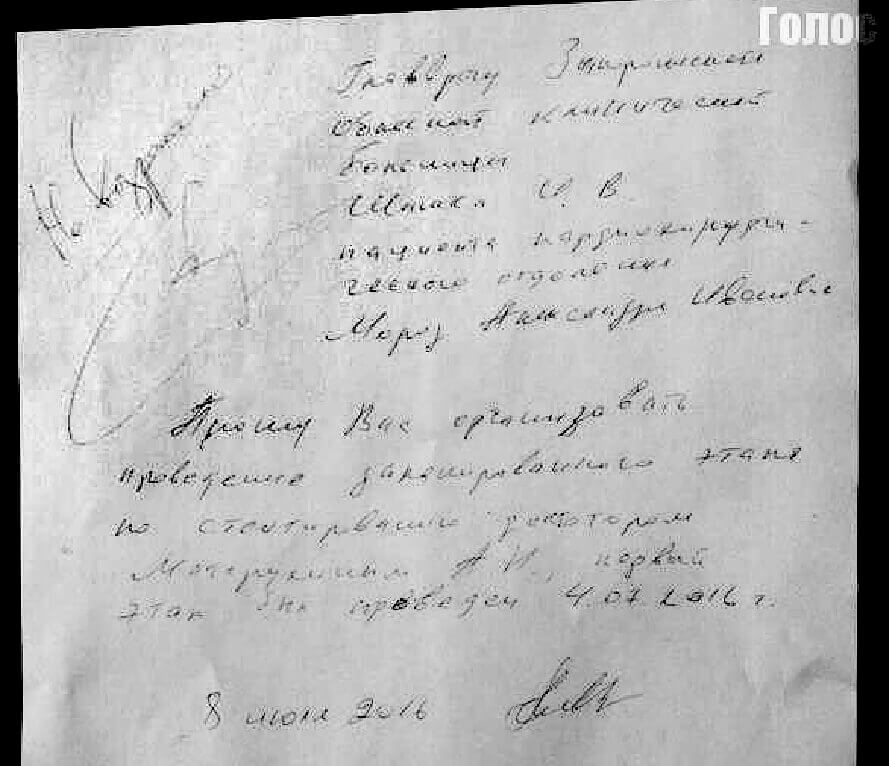 Голос
Главврачу Запорожской
областной клинической
больницы
Шишка И. В.
пациента кардиохирурги-
ческого отделения
Мороз Александра Иванович
Прошу Вас организовать
проведение запланированного этапа
по стентированию доктором
А И, первый
этап был проведен 4.07.2016 г.
8 июля 2016